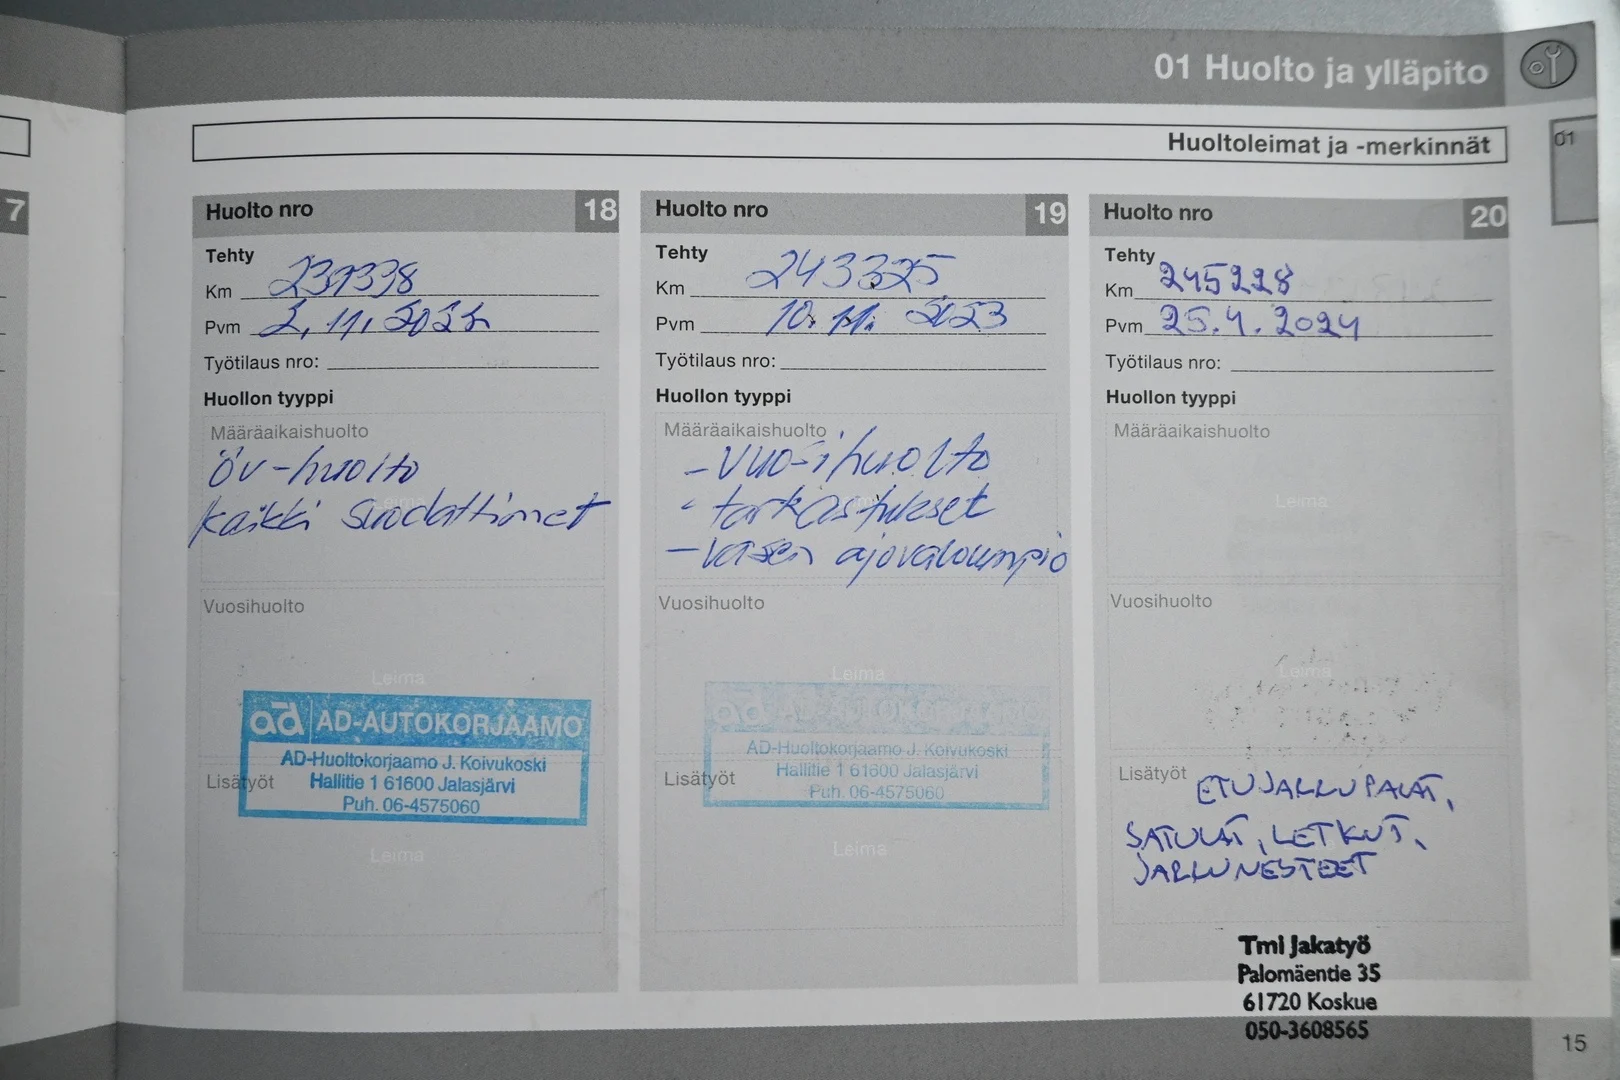 01 Huolto ja ylläpito
01
Huoltoleimat ja -merkinnät
7
Huolto nro 18
Tehty
Km 231338
Pvm 2.11.2022
Työtilaus nro:
Huollon tyyppi
Määräaikaishuolto
öv-huolto
Leima
kaikki suodattimet
Vuosihuolto
Leima
ad AD-AUTOKORJAAMO
AD-Huoltokorjaamo J. Koivukoski
Hallitie 1 61600 Jalasjärvi
Puh. 06-4575060
Lisätyöt
Leima
Huolto nro 19
Tehty
Km 243325
Pvm 10.11.2023
Työtilaus nro:
Huollon tyyppi
Määräaikaishuolto
- vuosihuolto
- tarkastukset
- vasen ajovaloumpio
Vuosihuolto
Leima
ad AD-AUTOKORJAAMO
AD-Huoltokorjaamo J. Koivukoski
Hallitie 1 61600 Jalasjärvi
Puh. 06-4575060
Lisätyöt
Leima
Huolto nro 20
Tehty
Km 245228
Pvm 25.4.2024
Työtilaus nro:
Huollon tyyppi
Määräaikaishuolto
Leima
Vuosihuolto
Leima
Lisätyöt
ETUJARRUPALAT,
SATULAT, LETKUT,
JARRUNESTEET
Tmi Jakatyö
Palomäentie 35
61720 Koskue
050-3608565
15